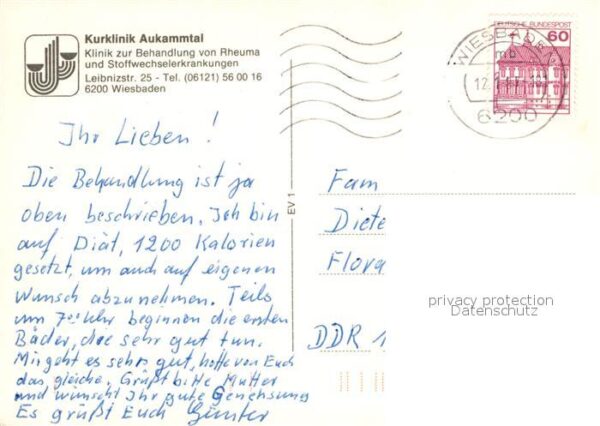 Kurklinik Aukammtal
Klinik zur Behandlung von Rheuma
und Stoffwechselerkrankungen
Leibnizstr. 25 - Tel. (06121) 56 00 16
6200 Wiesbaden
DEUTSCHE BUNDESPOST
60
WIESBADEN
mb
6200
Ihr Lieben!
Die Behandlung ist ja
oben beschrieben. Ich bin
auf Diät, 1200 Kalorien
gesetzt, um auch auf eigenen
Wunsch abzunehmen. Teils
um Uhr beginnen die ersten
Bäder, die sehr gut tun.
Mir geht es sehr gut, hoffe von Euch
das gleiche. Grüßt bitte Mutter
und wünscht Ihr gute Genehsung
Es grüßt Euch Günter
EV 1
Fam
Diete
Flora
DDR 1
privacy protection
Datenschutz